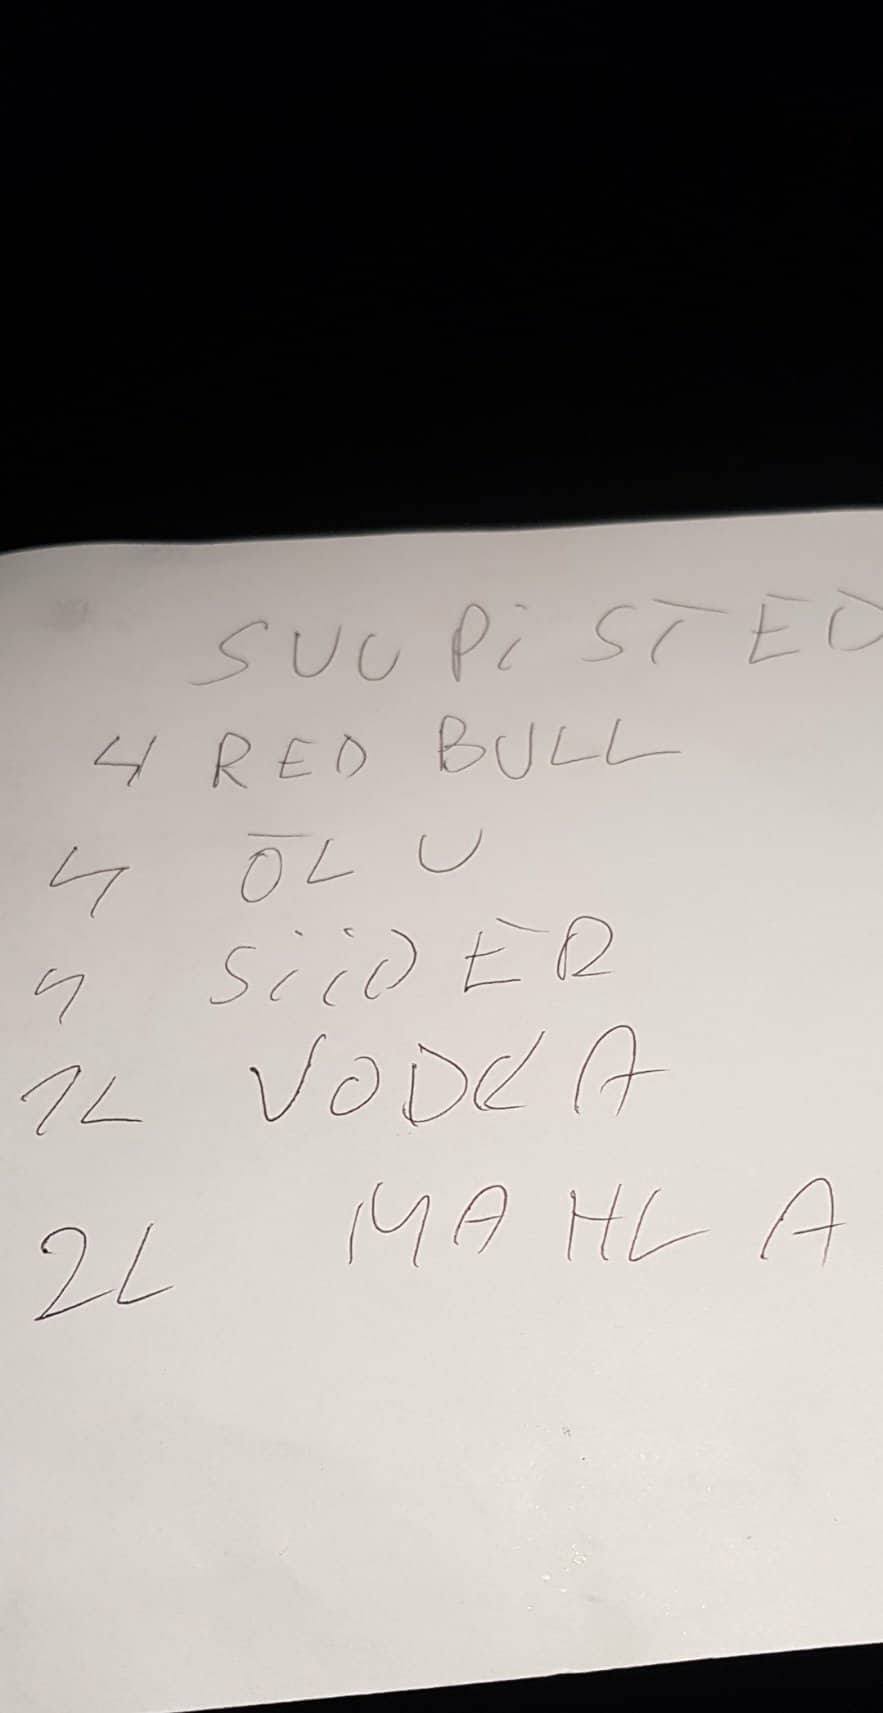 SUUPISTED
4 RED BULL
4 ÕLU
4 SiiDER
1L VODKA
2L MAHLA